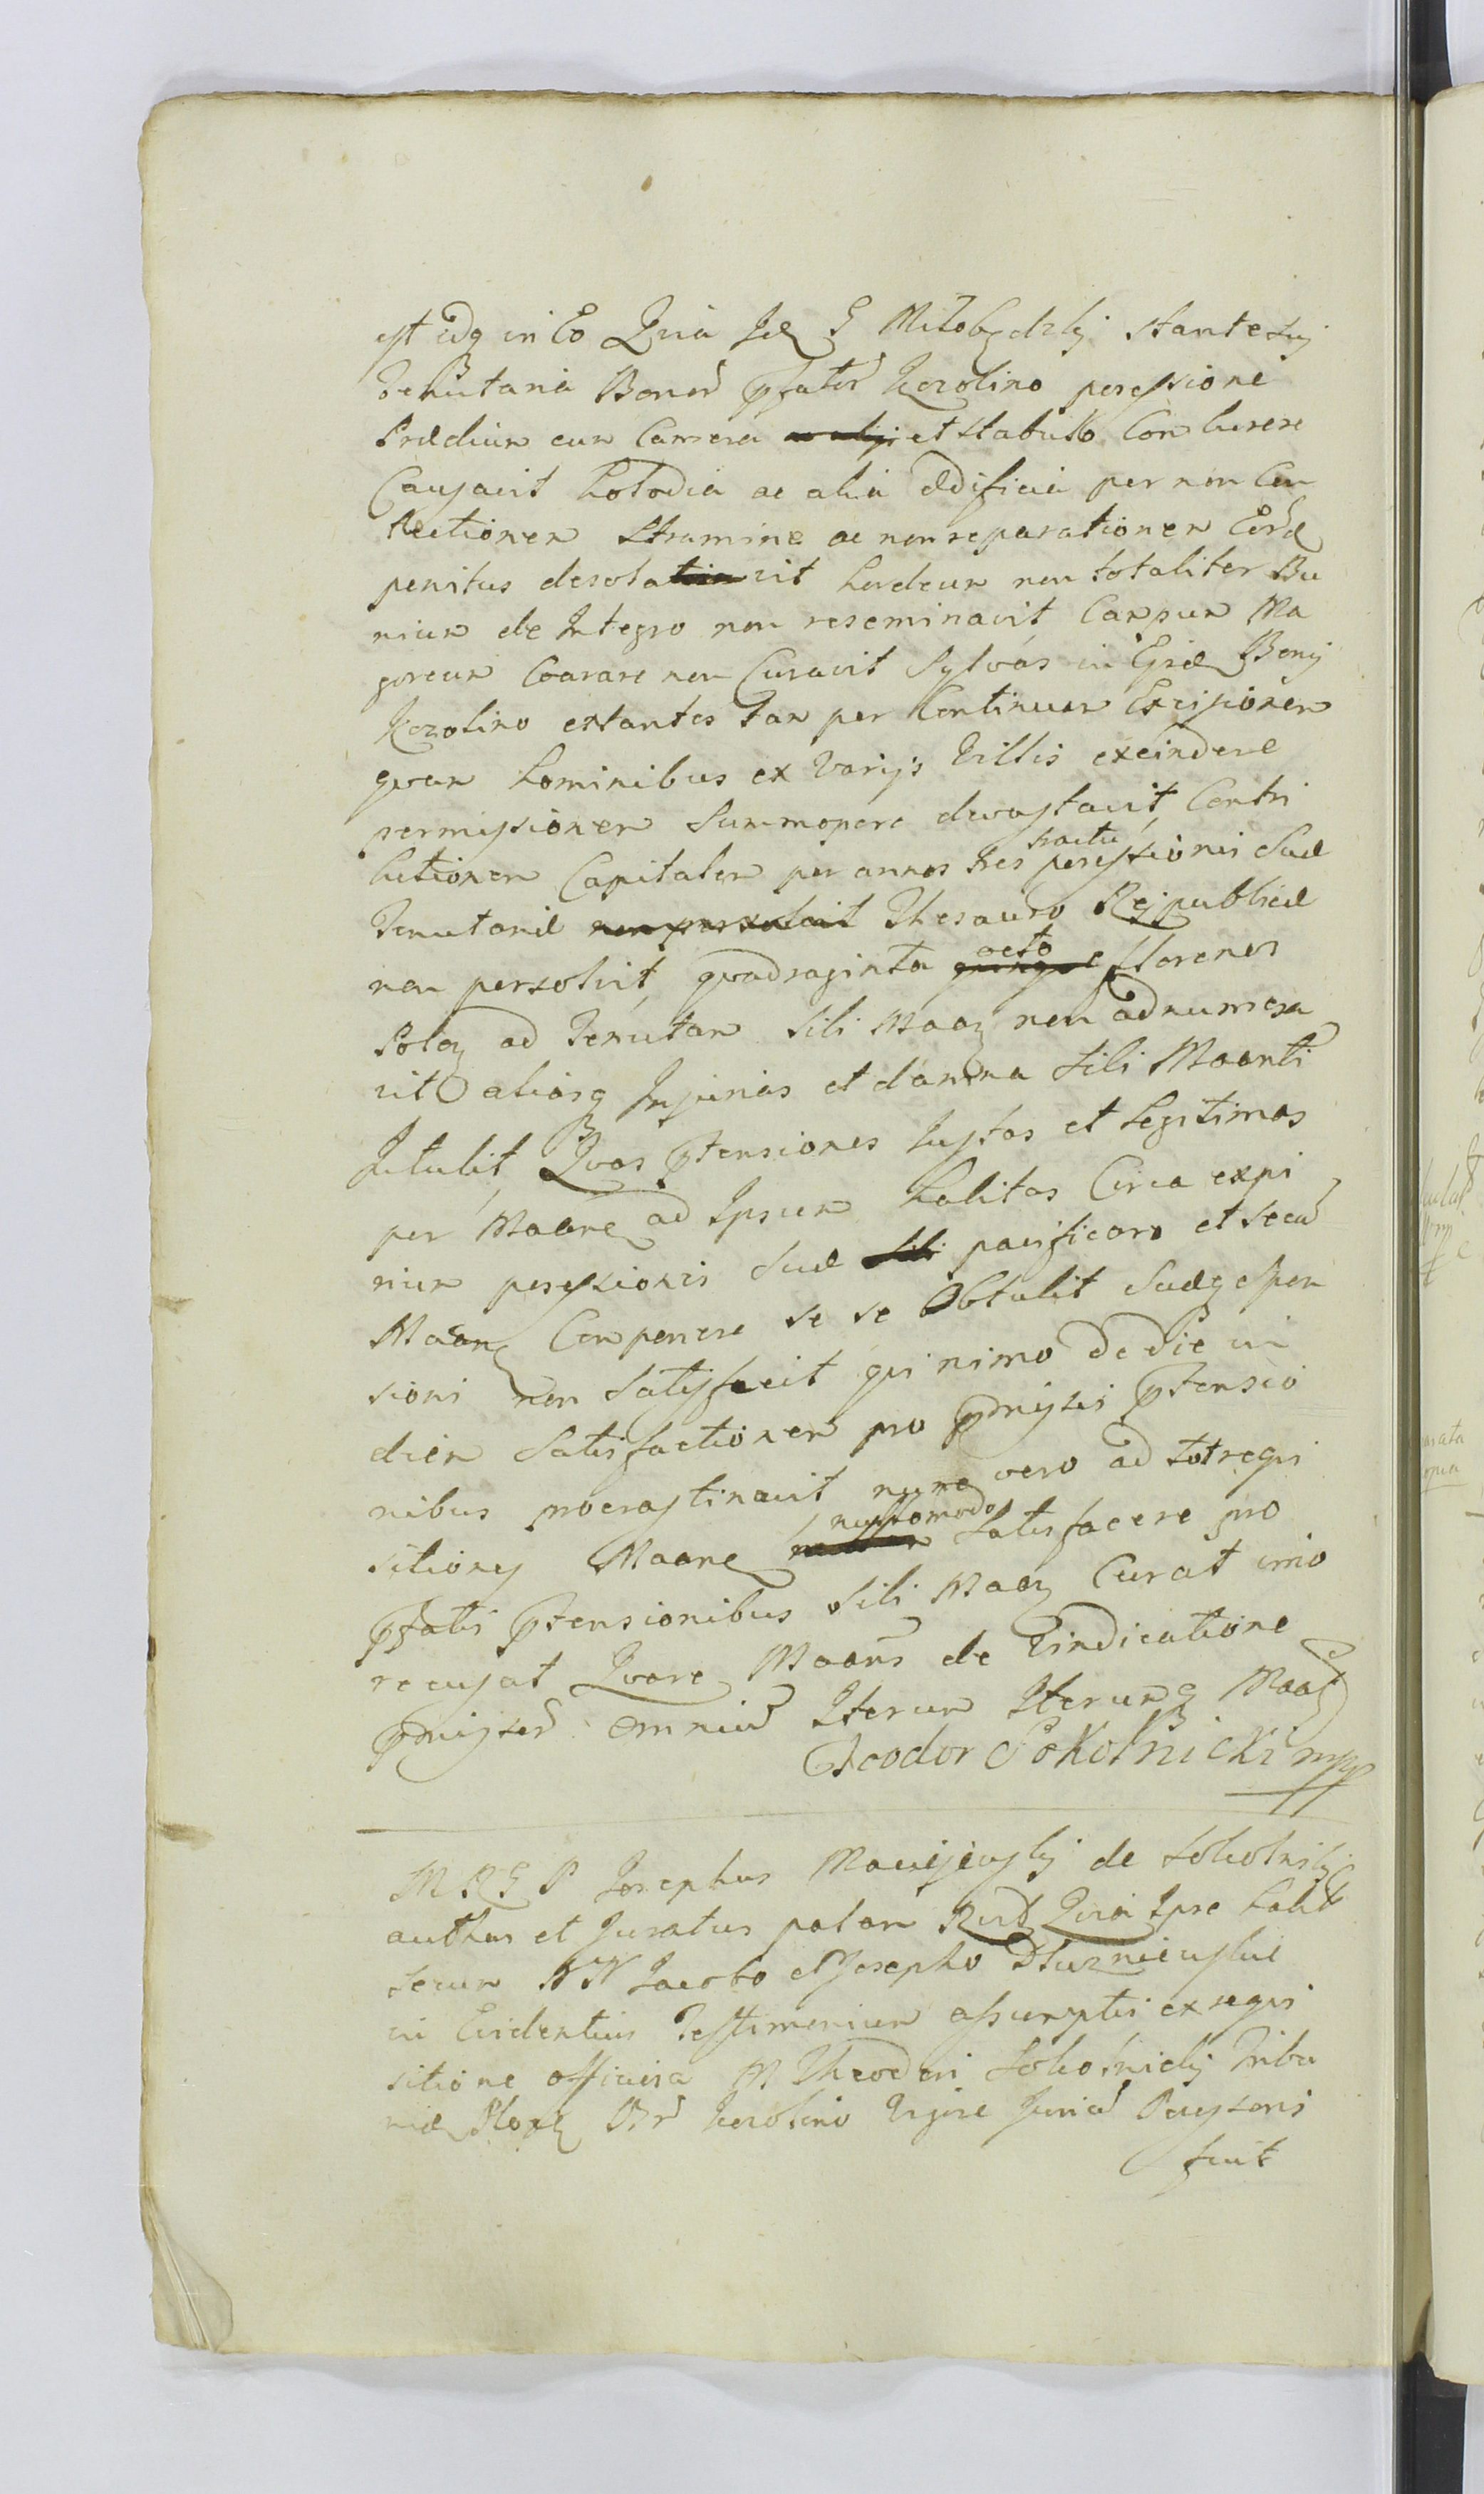 est idq in Eo Quia Id G Miłobędzki stante sui
Tenutaria Bonor pfator Kozolino possessione
Prædium cum Camera et stabulo Comburere
Causavit holodia ac alia ædificia per non Con
tectionem stramine ac non reparationem Eord
penitus desola vit hordeum non totaliter Bu
nium de Integro non reseminavit Campum Ma
goream Coarare non Curavit Sylvas in Ejsd Bonis
Kozolino extantes tam per Continuam Excisionem
quam hominibus ex Varijs Villis excindere
permissionem summopere devastavit, Contri
butionem Capitalem per annos tres tractu possessionis Suæ
Tenutariæ non persolvit Thesauro Reipublicæ
non persolvit, quadraginta octo florenos
Polon ad Tenutam sibi Maan non adnumera
vit aliasq Injurias et damna sibi Maanti
Intulit, Quas ptensiones Justas et Legitimas
per Maane ad Ipsum habitas Circa expi
rium possessionis suæ pacificare et secum
Maane Componere se se Obtulit Suæq spon
sioni non satisfecit qui nimo de die in
diem satisfactionem pro pmissis ptensio
nibus procrastinavit nunc vero ad tot requi
sitiones Maane nullomodo satisfacere pro
pfatis ptensionibus sibi Maan Curat imo
recusat Quare Maans de Vindicatione
pmissor omniu Iterum Iterumq Maat
Teodor Sokolnicki mpp
M R G P Josephus Maciejewski de Sokolniki
authus et Juratus palam Rudt Quia Ipse habit
secum NN Jacobo et Josepho Dłuzniewskie
in Evidentius Testimonium assumptis ex requi
sitione officiosa M Theodori Sokolnicki Tribu
niæ Plocen Br Kozolino Vigore Juriu Possessoris
fuit